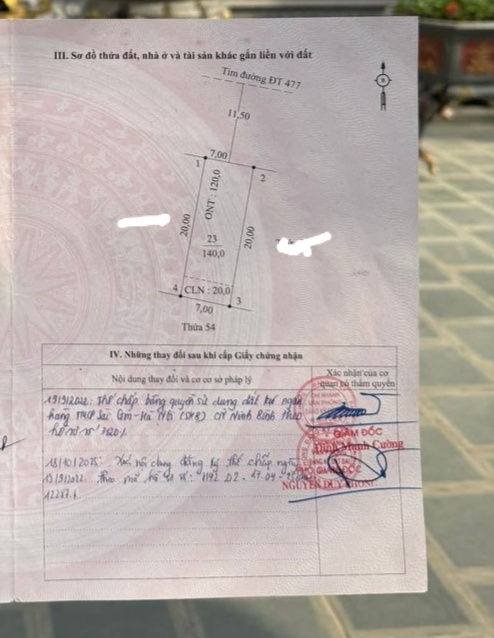 III. Sơ đồ thửa đất, nhà ở và tài sản khác gắn liền với đất
Tim đường ĐT 477
11,50
7,00
1
2
ONT : 120,0
20,00
20,00
23
140,0
4
CLN : 20,0
3
7,00
Thửa 54
IV. Những thay đổi sau khi cấp Giấy chứng nhận
Nội dung thay đổi và cơ sở pháp lý
Xác nhận của cơ quan có thẩm quyền
Thế chấp bằng quyền sử dụng đất tại ngân
hàng TMCP Sài Gòn - Hà Nội (SHB) CN Ninh Bình theo
hồ sơ số
GIÁM ĐỐC
Đinh Mạnh Cường
18/10/2025: Xóa nội dung đăng ký thế chấp ngày
theo mã hồ sơ số:
NGUYỄN DUY PHONG